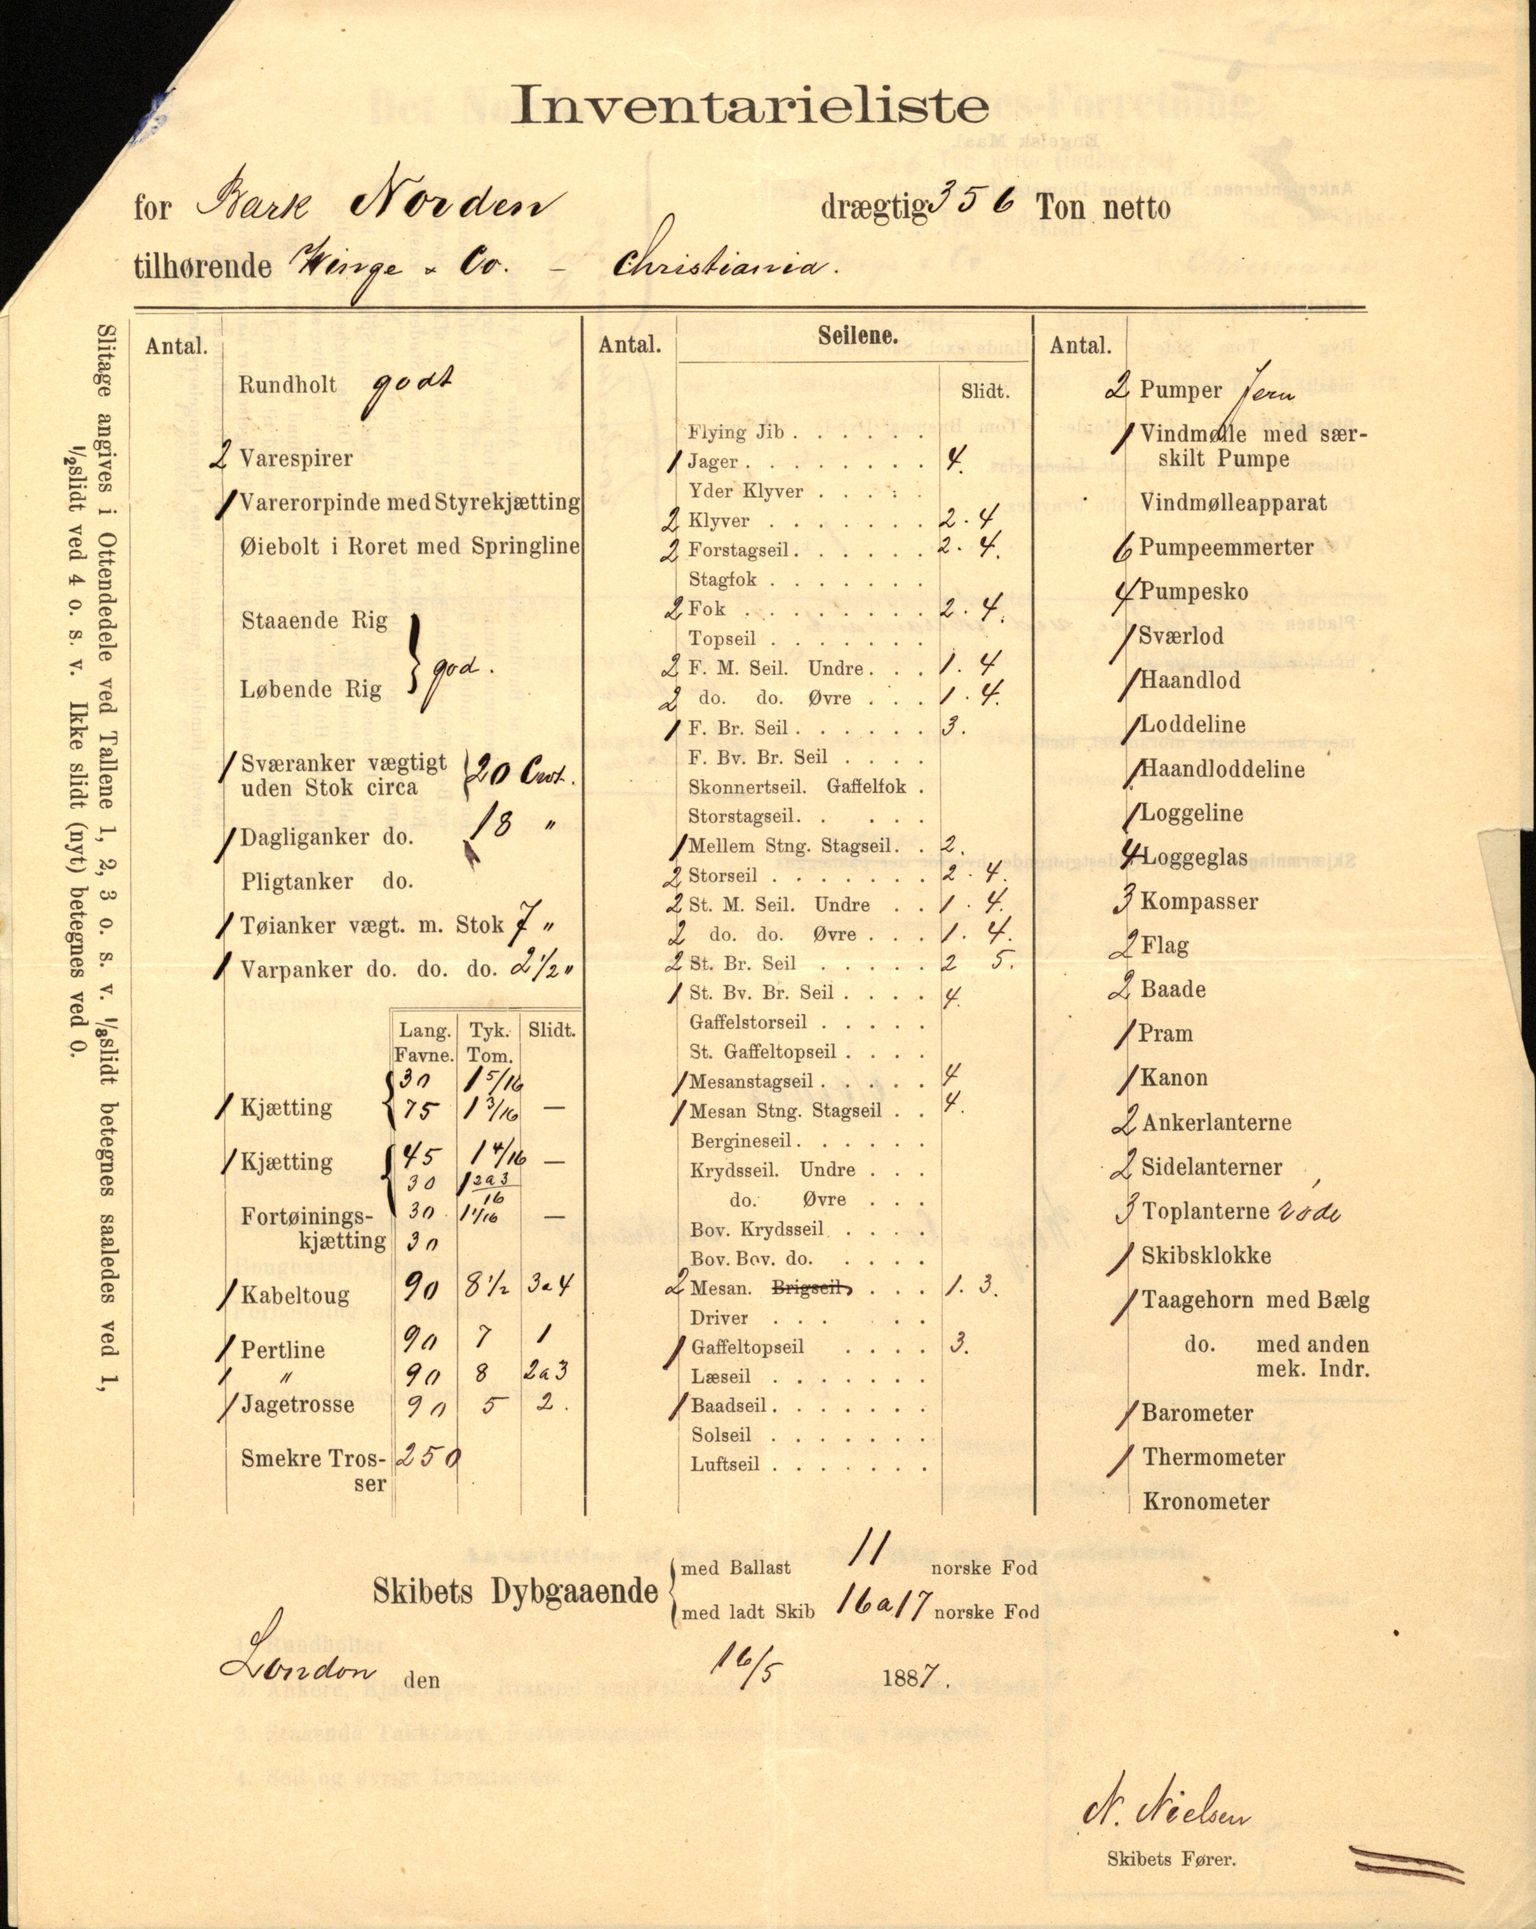 Inventarieliste
for Bark Norden drægtig 356 Ton netto
tilhørende Winge & Co. – Christiania.
Slitage angives i Ottendedele ved Tallene 1, 2, 3 o. s. v. 1/8 slidt betegnes saaledes ved 1,
1/2 slidt ved 4 o. s. v. Ikke slidt (nyt) betegnes ved 0.
Antal.
Rundholt godt
2 Varespirer
1 Varerorpinde med Styrekjætting
Øiebolt i Roret med Springline
Staaende Rig
} god.
Løbende Rig
1 Sværanker vægtigt
uden Stok circa } 20 Cwt.
1 Dagliganker do. 18 "
Pligtanker do.
1 Tøianker vægt. m. Stok 7 "
1 Varpanker do. do. do. 2 1/2 "
Lang. Tyk. Slidt.
Favne. Tom.
30 1 5/16
1 Kjætting { 75 1 3/16 —
1 Kjætting { 45 1 4/16 —
30 1 2a3/16
Fortøinings- 30 1 1/16 —
kjætting 30
1 Kabeltoug 90 8 1/2 3a4
1 Pertline 90 7 1
1 " 90 8 2a3
1 Jagetrosse 90 5 2.
Smekre Tros- 250
ser
Antal. Seilene.
Slidt.
Flying Jib . . . . . .
1 Jager . . . . . . . . 4.
Yder Klyver . . . .
2 Klyver . . . . . . . 2. 4
2 Forstagseil . . . . . . 2. 4.
Stagfok . . . . . . .
2 Fok . . . . . . . . 2. 4.
Topseil . . . . . . .
2 F. M. Seil. Undre . . . 1. 4
2 do. do. Øvre . . . 1. 4.
1 F. Br. Seil . . . . . . 3.
F. Bv. Br. Seil . . . .
Skonnertseil. Gaffelfok .
Storstagseil. . . . .
1 Mellem Stng. Stagseil . . 2.
2 Storseil . . . . . . . 2. 4.
2 St. M. Seil. Undre . . 1. 4.
2 do. do. Øvre . . . 1. 4.
2 St. Br. Seil . . . . . 2 5.
1 St. Bv. Br. Seil . . . . 4.
Gaffelstorseil . . . . .
St. Gaffeltopseil . . . .
1 Mesanstagseil . . . . . 4
1 Mesan Stng. Stagseil . . 4.
Bergineseil . . . . . .
Krydsseil. Undre . . .
do. Øvre . . .
Bov. Krydsseil . . . .
Bov. Bov. do. . . . .
2 Mesan. Brigseil . . . 1. 3.
Driver . . . . .
1 Gaffeltopseil . . . . 3.
Læseil . . . . . . .
1 Baadseil . . . . . . .
Solseil . . . . . . .
Luftseil . . . . . . .
Antal.
2 Pumper Jern
1 Vindmølle med sær-
skilt Pumpe
Vindmølleapparat
6 Pumpeemmerter
4 Pumpesko
1 Sværlod
1 Haandlod
1 Loddeline
1 Haandloddeline
1 Loggeline
4 Loggeglas
3 Kompasser
2 Flag
2 Baade
1 Pram
1 Kanon
2 Ankerlanterne
2 Sidelanterner
3 Toplanterne röde
1 Skibsklokke
1 Taagehorn med Bælg
do. med anden
mek. Indr.
1 Barometer
1 Thermometer
Kronometer
Skibets Dybgaaende { med Ballast 11 norske Fod
med ladt Skib 16 a 17 norske Fod
London den 16/5 1887.
N. Nielsen
Skibets Fører.